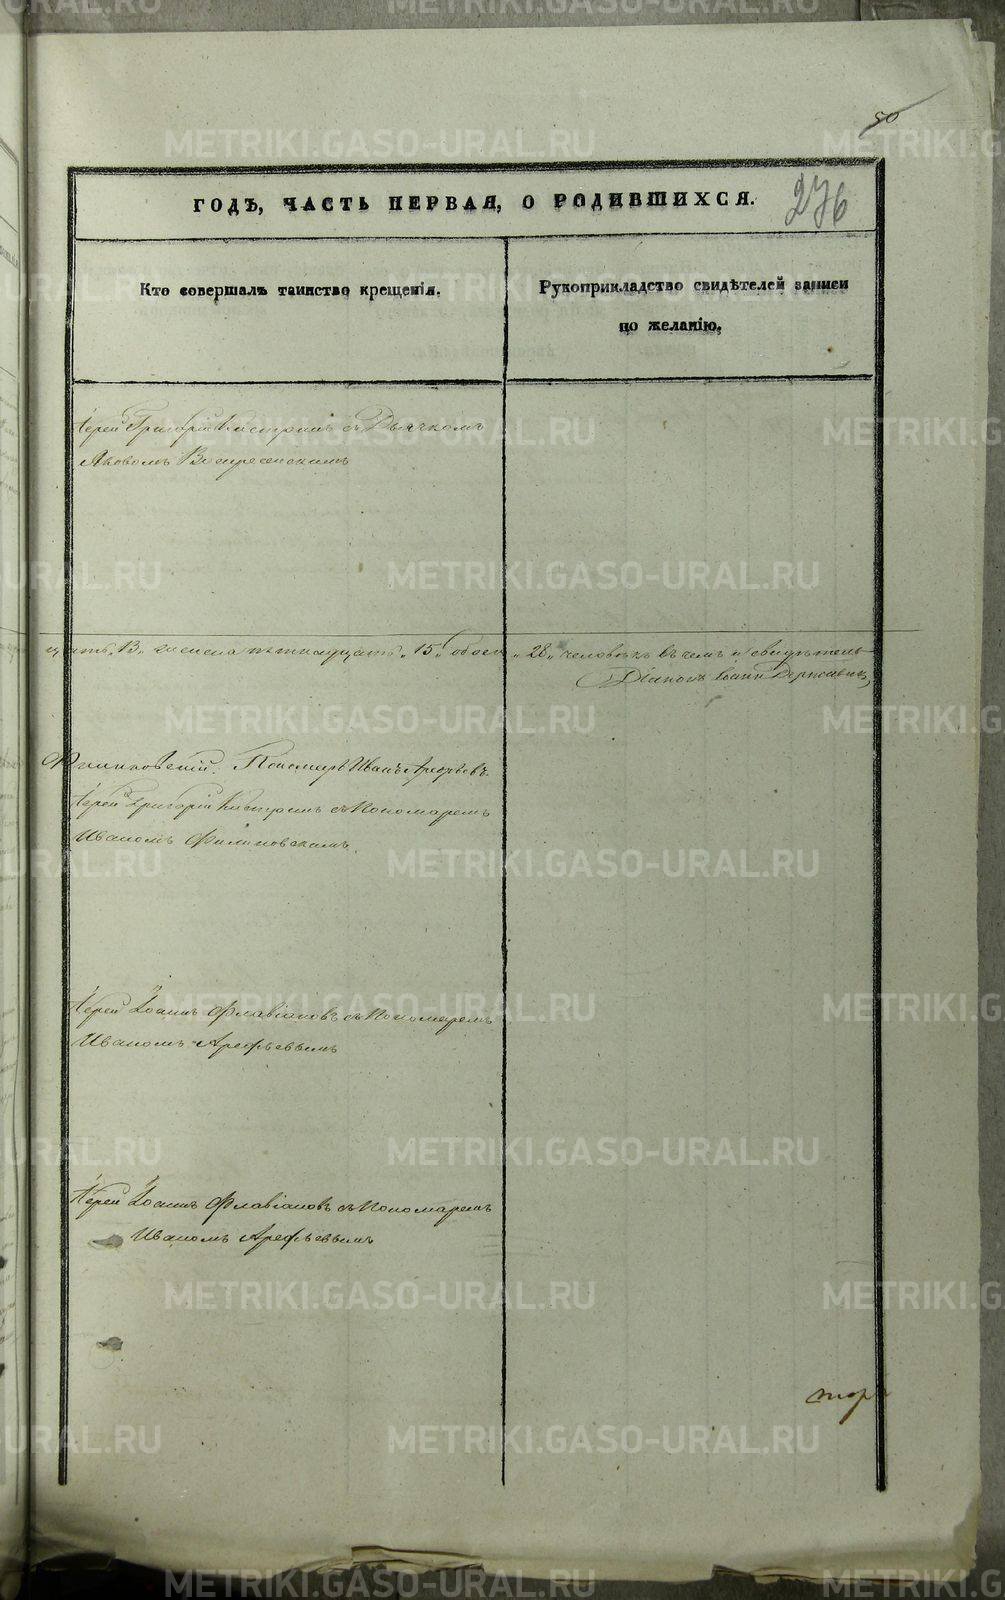 50
276
ГОДЪ, ЧАСТЬ ПЕРВАЯ, О РОДИВШИХСЯ.
Кто совершалъ таинство крещенія.
Рукоприкладство свидѣтелей записи
по желанію.
Іерей Григорій с Дьячкомъ
Яковомъ Воскресенскимъ
13 пятнадцать 15 обоего 28 человекъ въ чемъ и свидѣтель
Діаконъ Іоаннъ
Филиновскій. Пономарь Иванъ Арефьевъ
Іерей Григорій съ Пономаремъ
Иваномъ Филиновскимъ.
Іерей Іоаннъ Флавіановъ съ Пономаремъ
Иваномъ Арефьевымъ
Іерей Іоаннъ Флавіановъ съ Пономаремъ
Иваномъ Арефьевымъ
METRIKI.GASO-URAL.RU